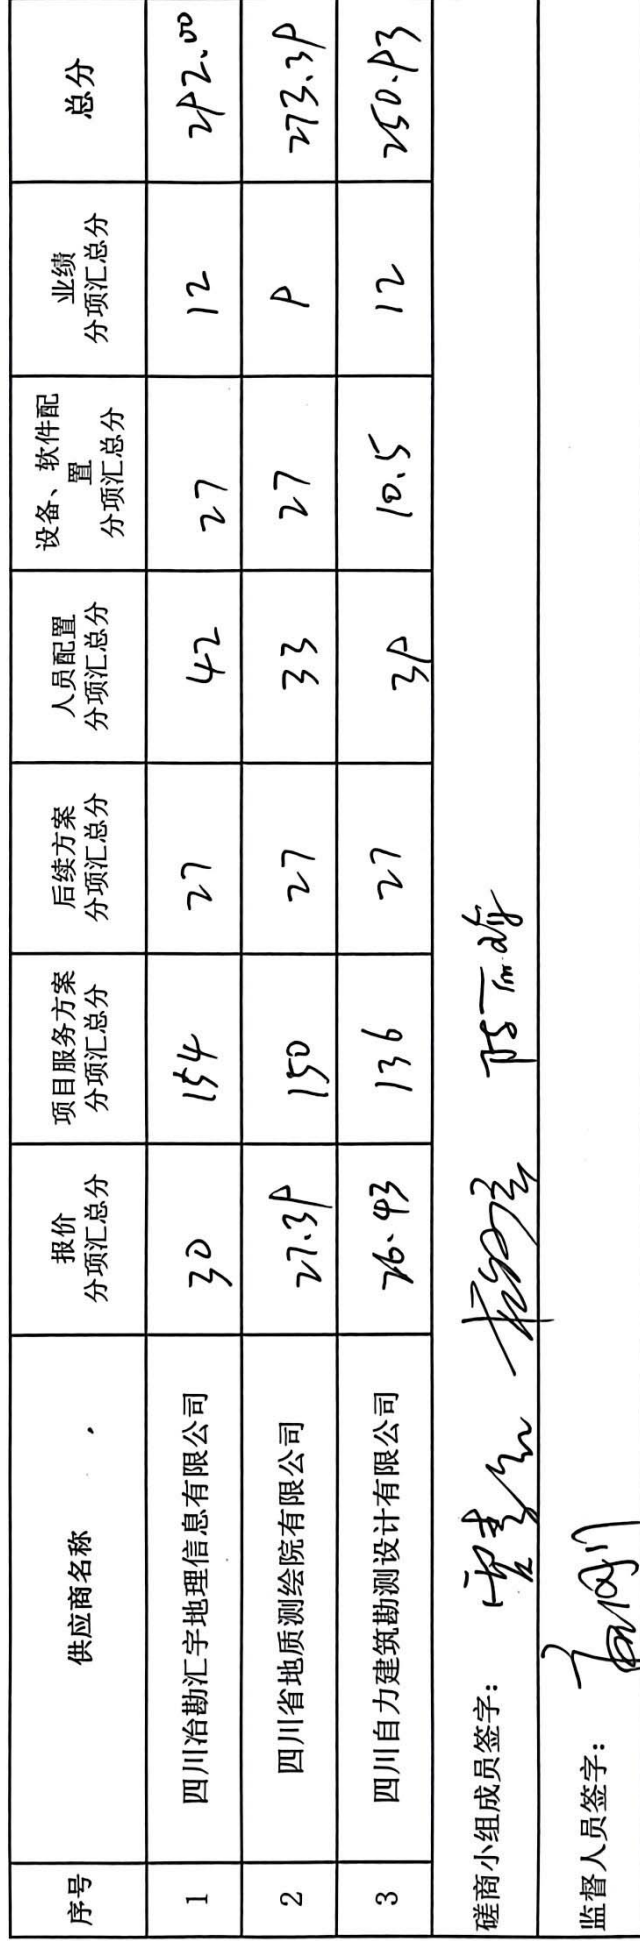 序号 供应商名称 报价分项汇总分 项目服务方案分项汇总分 后续方案分项汇总分 人员配置分项汇总分 设备、软件配置分项汇总分 业绩分项汇总分 总分
1 四川冶勘汇宇地理信息有限公司 30 154 27 42 27 12 292.00
2 四川省地质测绘院有限公司 27.39 150 27 33 27 9 273.39
3 四川自力建筑勘测设计有限公司 26.43 136 27 39 10.5 12 250.93
磋商小组成员签字：
监督人员签字：